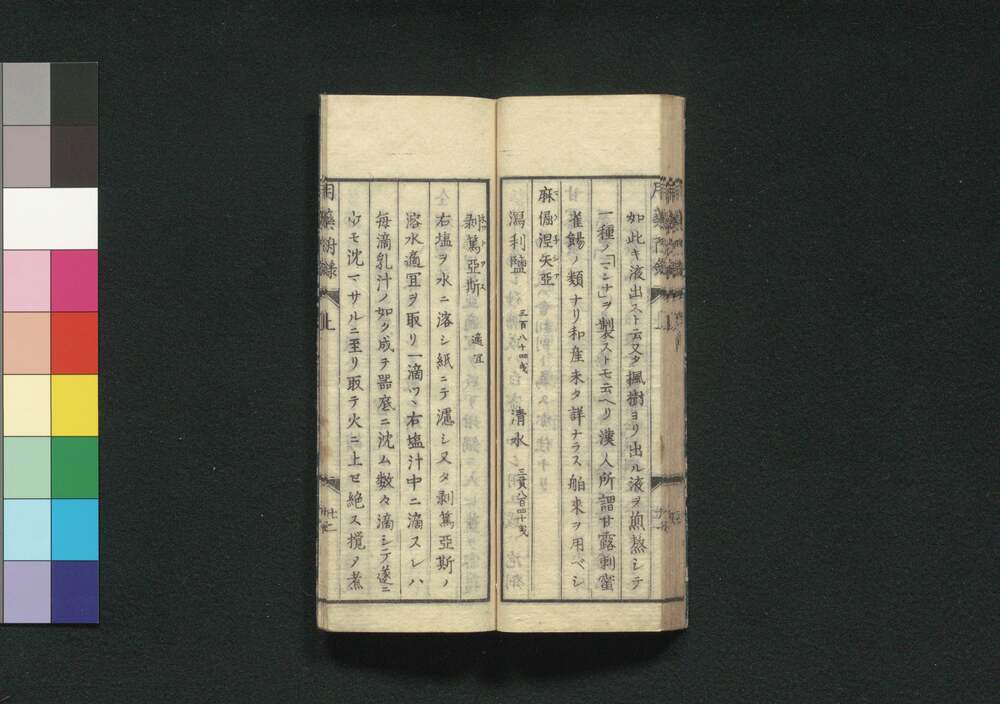 如此キ液出スト云又タ楓樹ヨリ出ル液ヲ煎熬シテ
一種ノ「マンナ」ヲ製ストモ云ヘリ漢人所謂甘露刺蜜
雀餳ノ類ナリ和産未タ詳ナラス舶来ヲ用ベシ
麻倔涅矢亞
瀉利鹽 三百八十四戔 清水 三貫八百四十戔
剥篤亞斯 適宜
右塩ヲ水ニ溶シ紙ニテ濾シ又タ剥篤亞斯ノ
溶水適宜ヲ取リ一滴ツヽ右塩汁中ニ滴スレハ
毎滴乳汁ノ如ク成テ器底ニ沈ム数々滴シテ遂ニ
少モ沈マサルニ至リ取テ火ニ上セ絶ス攪ノ煮
用藥附録 上